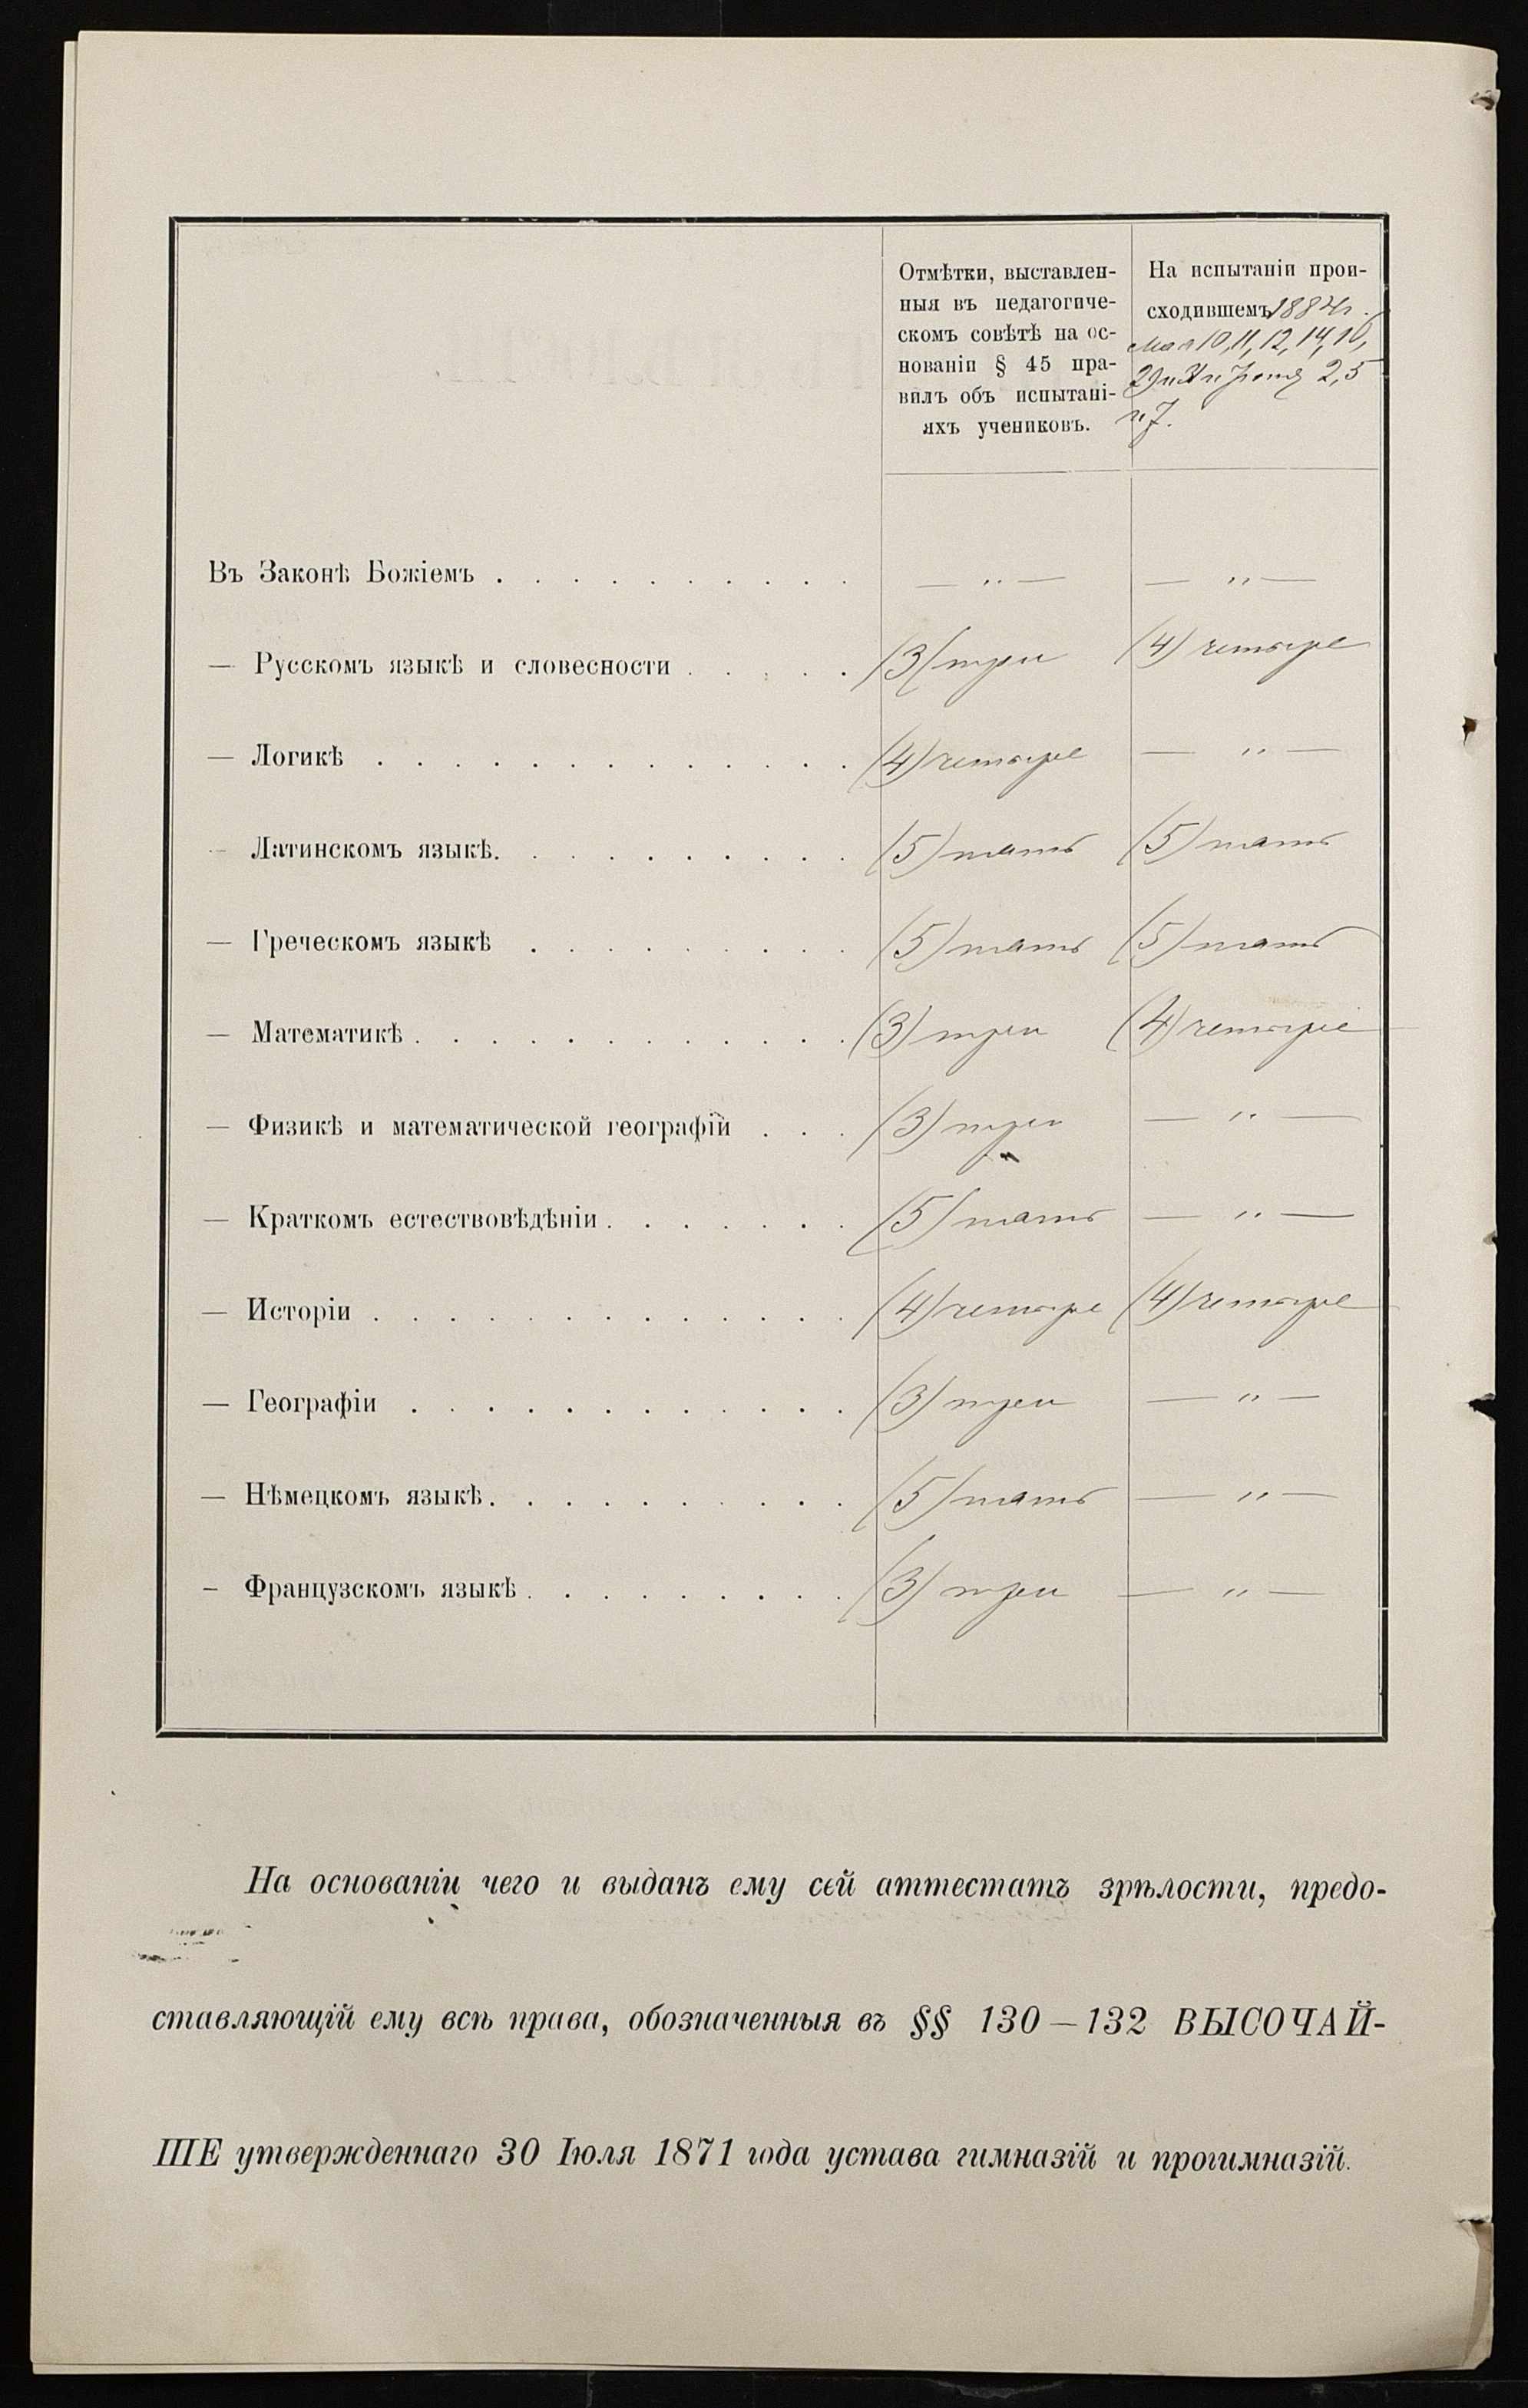 Отмѣтки, выставлен-
ныя въ педагогиче-
скомъ совѣтѣ на ос-
нованіи § 45 пра-
вилъ объ испытані-
яхъ учениковъ.
На испытаніи прои-
сходившемъ 1884 г.
мая 10, 11, 12, 14, 16,
29 и 31 и Іюня 2, 5
и 7.
Въ Законѣ Божіемъ . . . . . . . . . . — „ — — „ —
— Русскомъ языкѣ и словесности . . . . . (3) три (4) четыре
— Логикѣ . . . . . . . . . . . . . (4) четыре — „ —
— Латинскомъ языкѣ. . . . . . . . . . (5) пять (5) пять
— Греческомъ языкѣ . . . . . . . . . (5) пять (5) пять
— Математикѣ . . . . . . . . . . . . (3) три (4) четыре
— Физикѣ и математической географій . . . (3) три — „ —
— Краткомъ естествовѣдѣніи . . . . . . . (5) пять — „ —
— Исторіи . . . . . . . . . . . . . (4) четыре (4) четыре
— Географіи . . . . . . . . . . . . (3) три — „ —
— Нѣмецкомъ языкѣ. . . . . . . . . . (5) пять — „ —
— Французскомъ языкѣ . . . . . . . . . (3) три — „ —
На основаніи чего и выданъ ему сей аттестатъ зрѣлости, предо-
ставляющій ему всѣ права, обозначенныя въ §§ 130—132 ВЫСОЧАЙ-
ШЕ утвержденнаго 30 Іюля 1871 года устава гимназій и прогимназій.